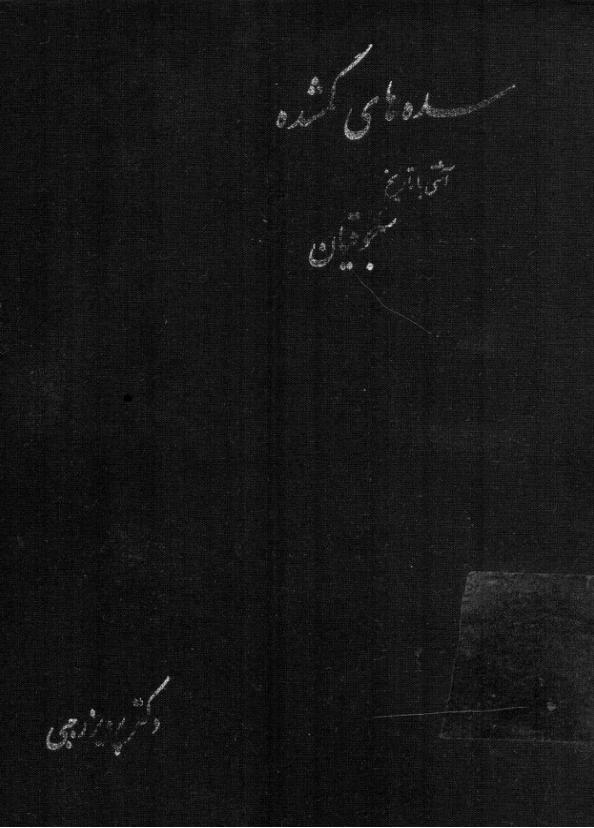 سده‌های گمشده
آشتی با تاریخ
سلجوقیان
دکتر پرویز رجبی